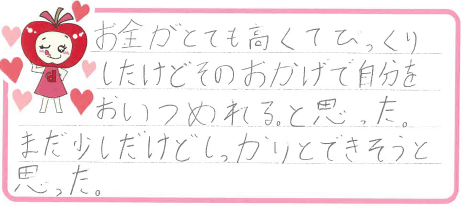 お金がとても高くてびっくり
したけどそのおかげで自分を
おいつめれる。と思った。
まだ少しだけどしっかりとできそうと
思った。